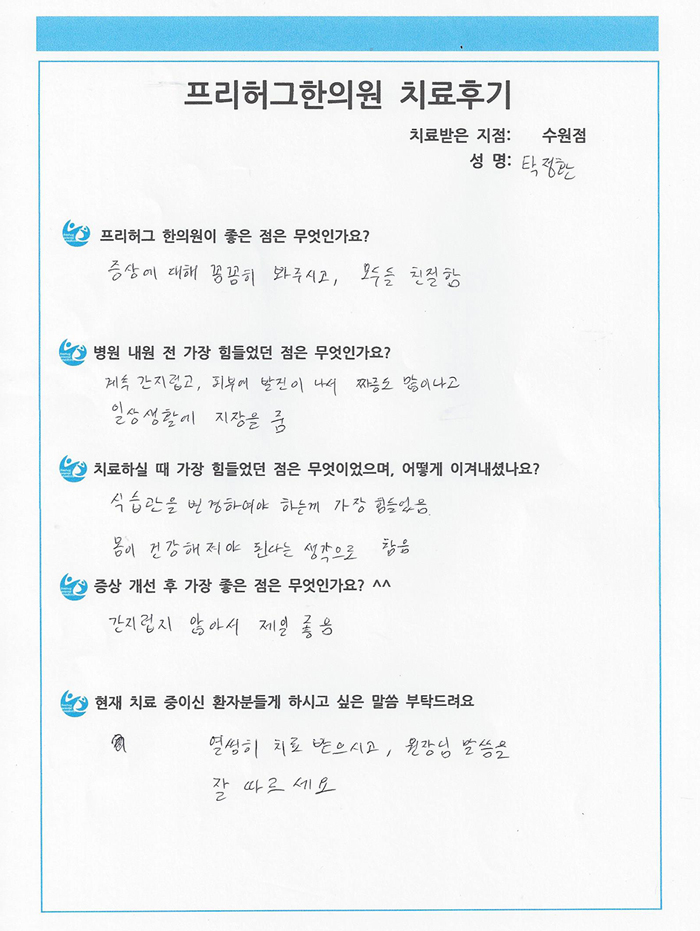 프리허그한의원 치료후기
치료받은 지점: 수원점
성 명: 탁정환
프리허그 한의원이 좋은 점은 무엇인가요?
증상에 대해 꼼꼼히 봐주시고, 모두들 친절함
병원 내원 전 가장 힘들었던 점은 무엇인가요?
계속 간지럽고, 피부에 발진이 나서 짜증도 많이나고
일상생활에 지장을 줌
치료하실 때 가장 힘들었던 점은 무엇이었으며, 어떻게 이겨내셨나요?
식습관을 변경하여야 하는게 가장 힘들었음.
몸이 건강해져야 된다는 생각으로 참음
증상 개선 후 가장 좋은 점은 무엇인가요? ^^
간지럽지 않아서 제일 좋음
현재 치료 중이신 환자분들게 하시고 싶은 말씀 부탁드려요
열씸히 치료 받으시고, 원장님 말씀을
잘 따르세요